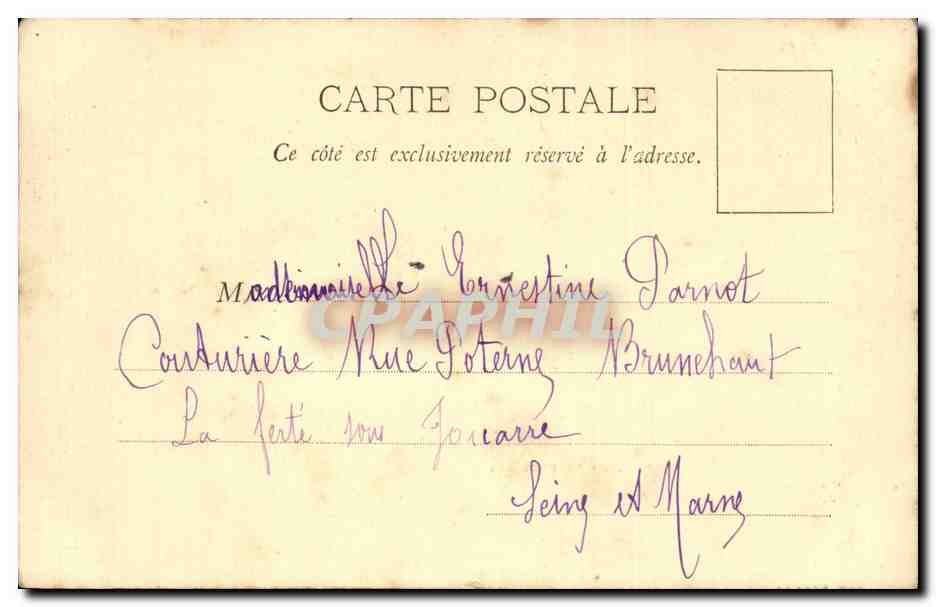 CARTE POSTALE
Ce côté est exclusivement réservé à l'adresse.
Mademoiselle Ernestine Parnot
CPAPHIL
Couturière Rue Poterne Brunehaut
La ferté sous Jouarre
Seine et Marne